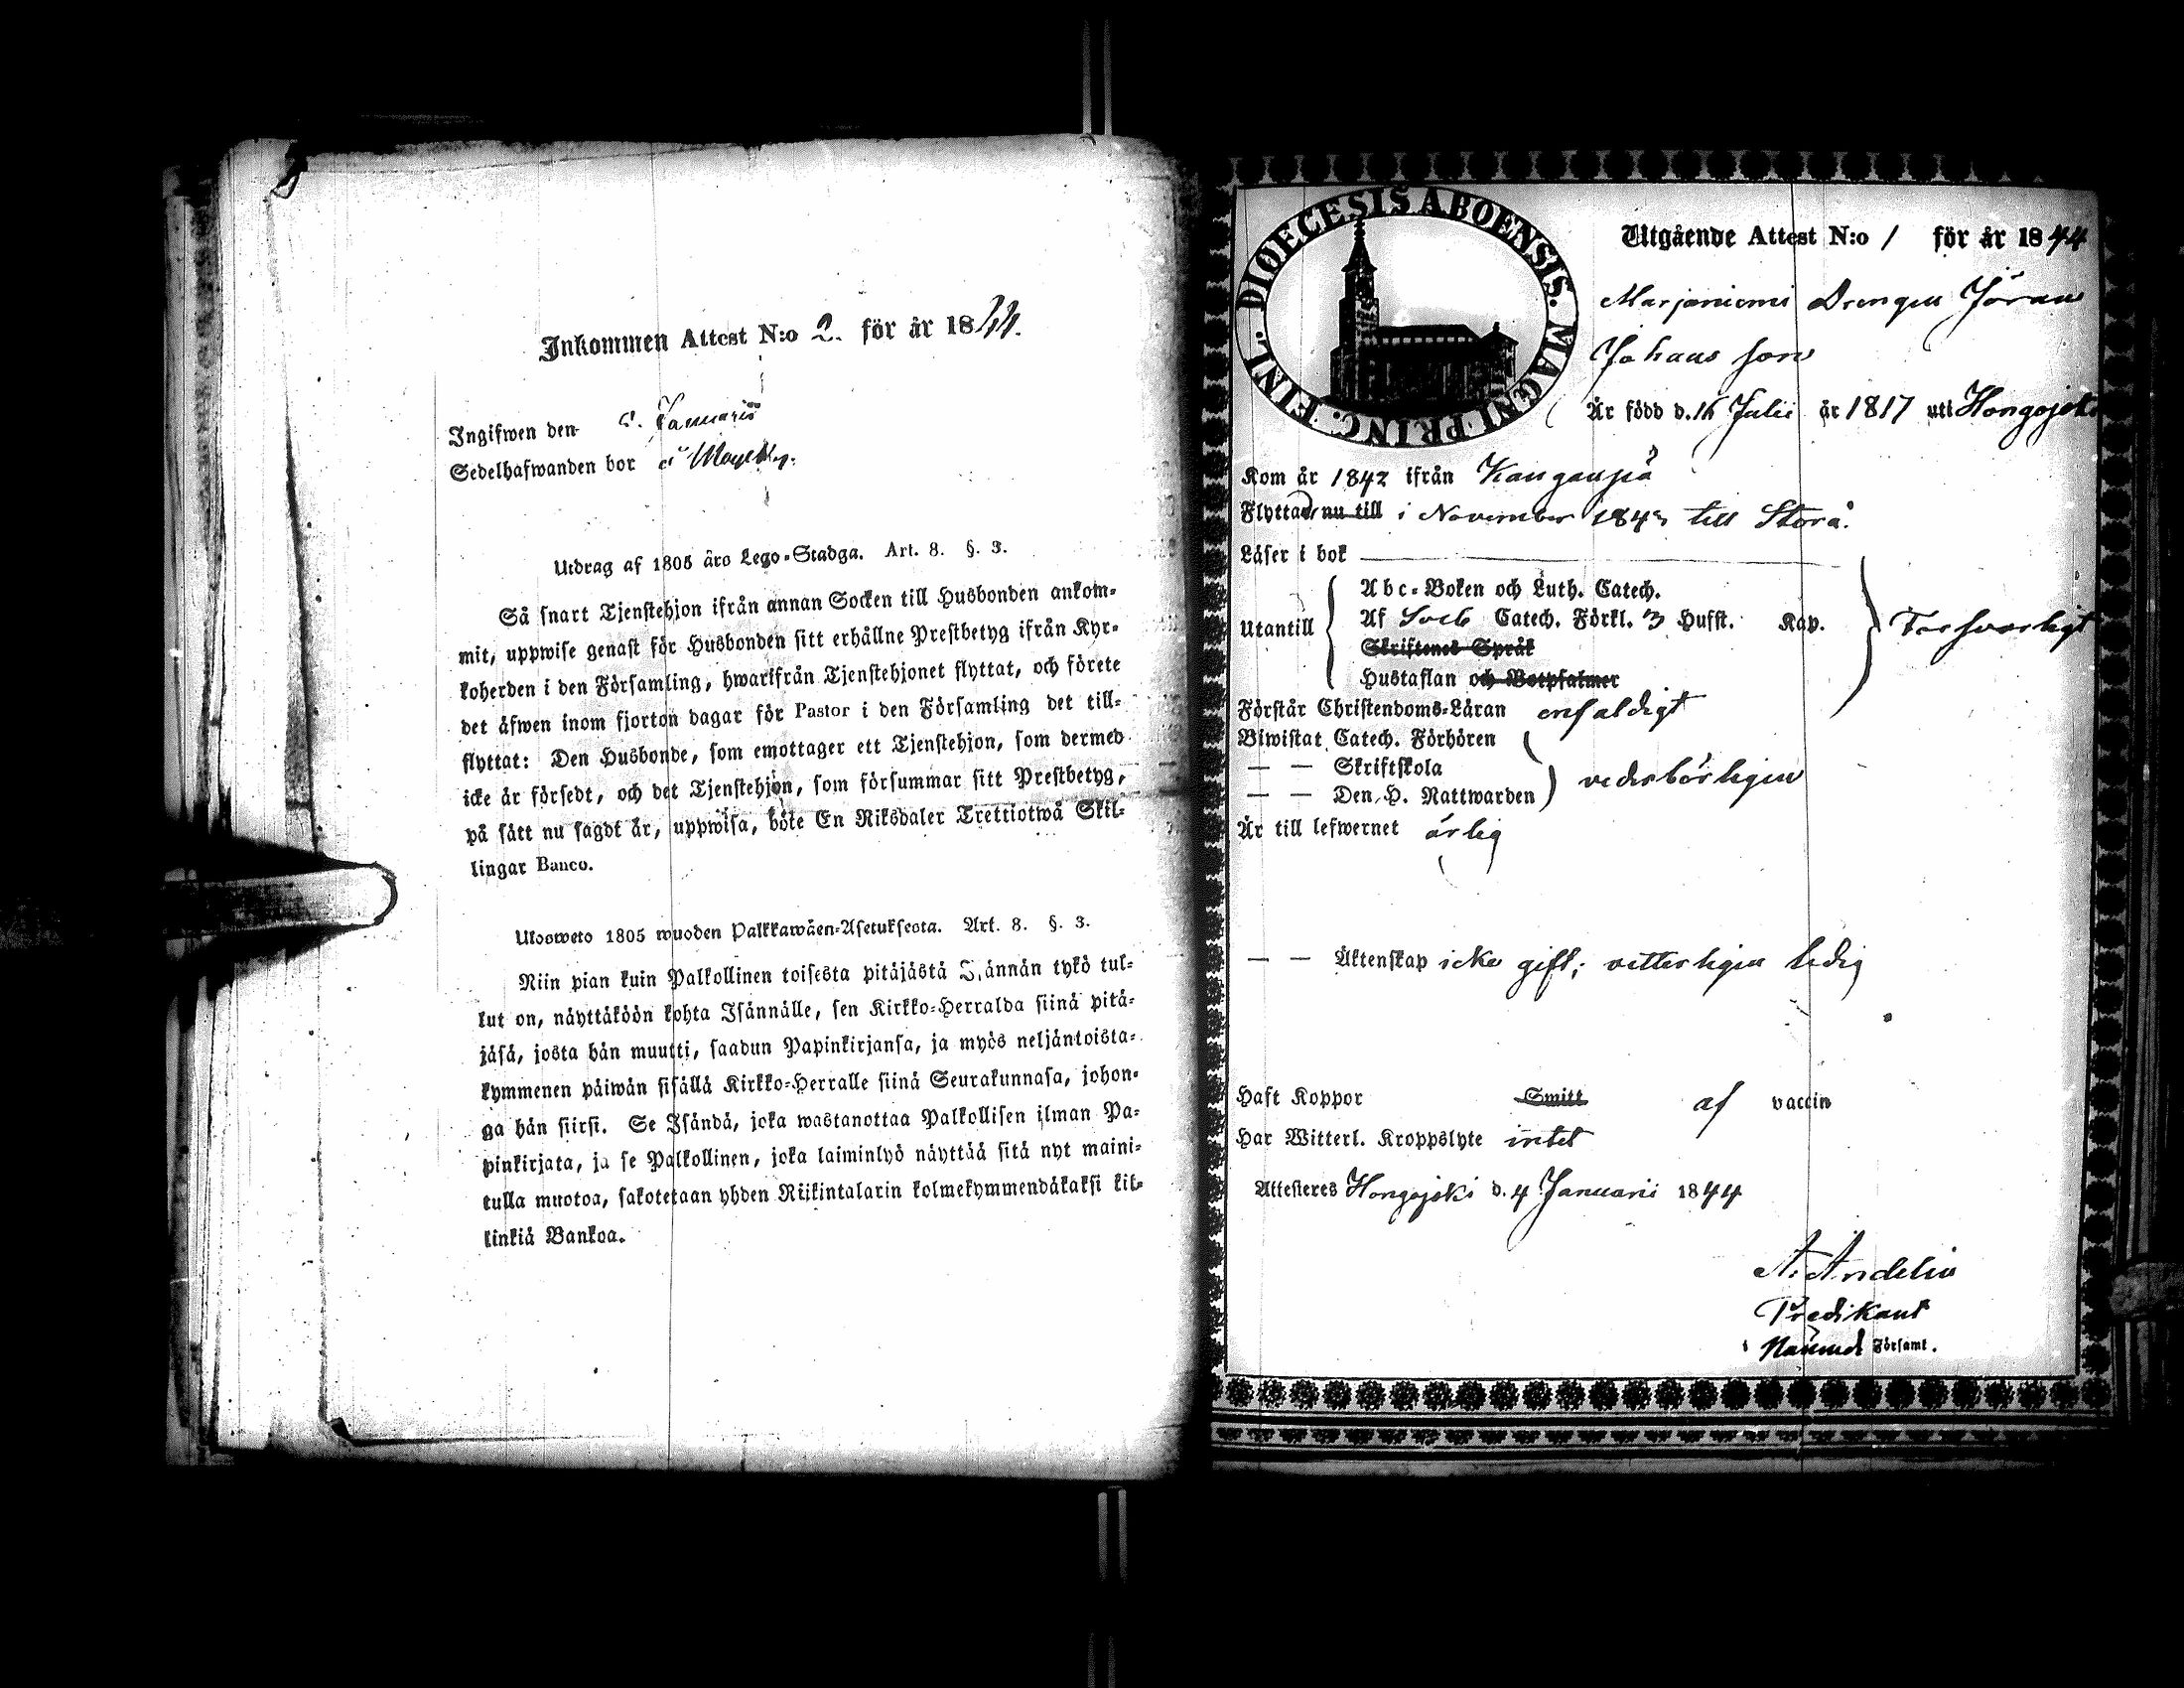 Inkommen Attest N:o 2. för år 1844.
Ingifwen den Januarii
Sedelhafwanden bor å
Utdrag af 1805 års Lego-Stadga. Art. 8. §. 3.
Så snart Tjenstehjon ifrån annan Socken till Husbonden ankom-
mit, uppwise genast för Husbonden sitt erhållne Prestbetyg ifrån Kyr-
koherden i den Församling, hwarifrån Tjenstehjonet flyttat, och förete
det äfwen inom fjorton dagar för Pastor i den Församling det till-
flyttat: Den Husbonde, som emottager ett Tjenstehjon, som dermed
icke är försedt, och det Tjenstehjon, som försummar sitt Prestbetyg,
på sätt nu sagdt är, uppwisa, böte En Riksdaler Trettiotwå Skil-
lingar Banco.
Ulosweto 1805 wuoden Palkkawäen-Asetuksesta. Art. 8. §. 3.
Niin pian kuin Palkollinen toisesta pitäjästä Isännän tykö tul-
lut on, näyttäköön kohta Isännälle, sen Kirkko-Herralda siinä pitä-
jäsä, josta hän muutti, saadun Papinkirjansa, ja myös neljäntoista-
kymmenen päiwän sisällä Kirkko-Herralle siinä Seurakunnasa, johon-
ga hän siirsi. Se Isändä, joka wastanottaa Palkollisen ilman Pa-
pinkirjata, ja se Palkollinen, joka laiminlyö näyttää sitä nyt maini-
tulla muotoa, sakotetaan yhden Riikintalarin kolmekymmendäkaksi kil-
linkiä Bankoa.
DIOECESIS ABOENSIS. MAGNI PRINC. FINL.
Utgående Attest N:o 1 för år 1844
Marjaniemi Drengen Jöran
Johans son
Är född d. 16 Julii år 1817 uti Hongojoki
Kom år 1842 ifrån Kanganpä
Flyttad nu till i November 1843 till Storå.
Läser i bok
Utantill
Abc-Boken och Luth. Catech.
Af Sveb Catech. Förkl. 3 Hufst. Kap.
Försvarligt
Skriftenes Språk
Hustaflan och Botpsalmer
Förstår Christendoms-Läran enfaldigt
Biwistat Catech. Förhören
— — Skriftskola
vederbörligen
— — Den H. Nattwarden
Är till lefwernet ärlig
— — Äktenskap icke gift; vetterligen ledig
Haft Koppor Smitt af vaccin
Har Witterl. Kroppslyte intet
Attesteres Hongojoki d. 4 Januarii 1844
A. Andelin
Predikant
i Församl.